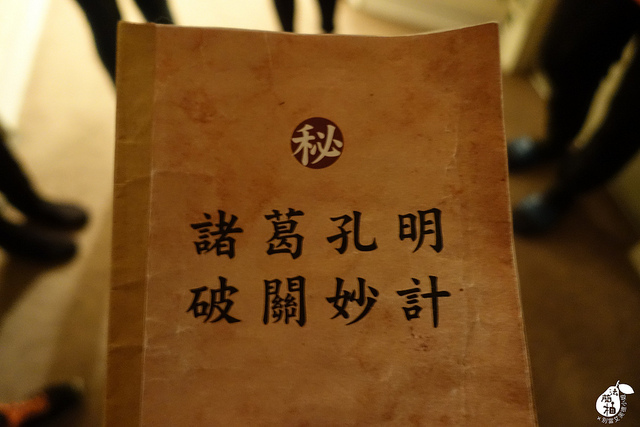 秘
諸葛孔明
破關妙計